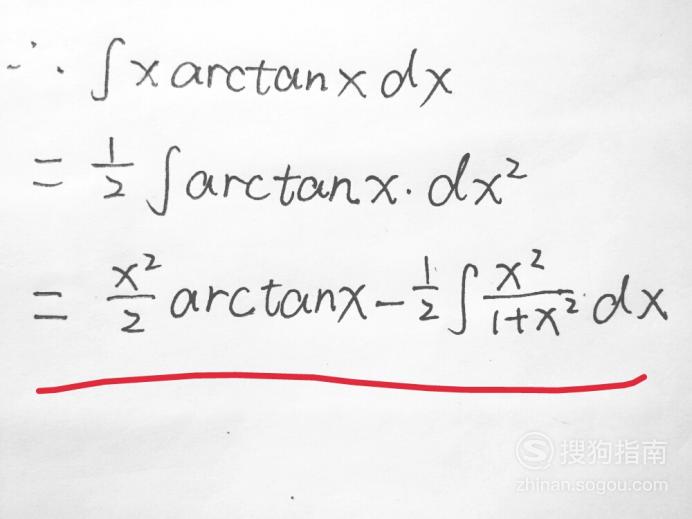 ∴ ∫x arctanx dx
= 1/2 ∫arctanx · dx²
= x²/2 arctanx - 1/2 ∫ x²/(1+x²) dx
S 搜狗指南
zhinan.sogou.com